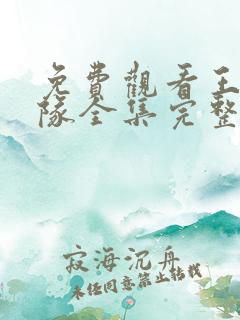 免費觀看王
隊全集完整
寂海沉舟
未经同意禁止转载